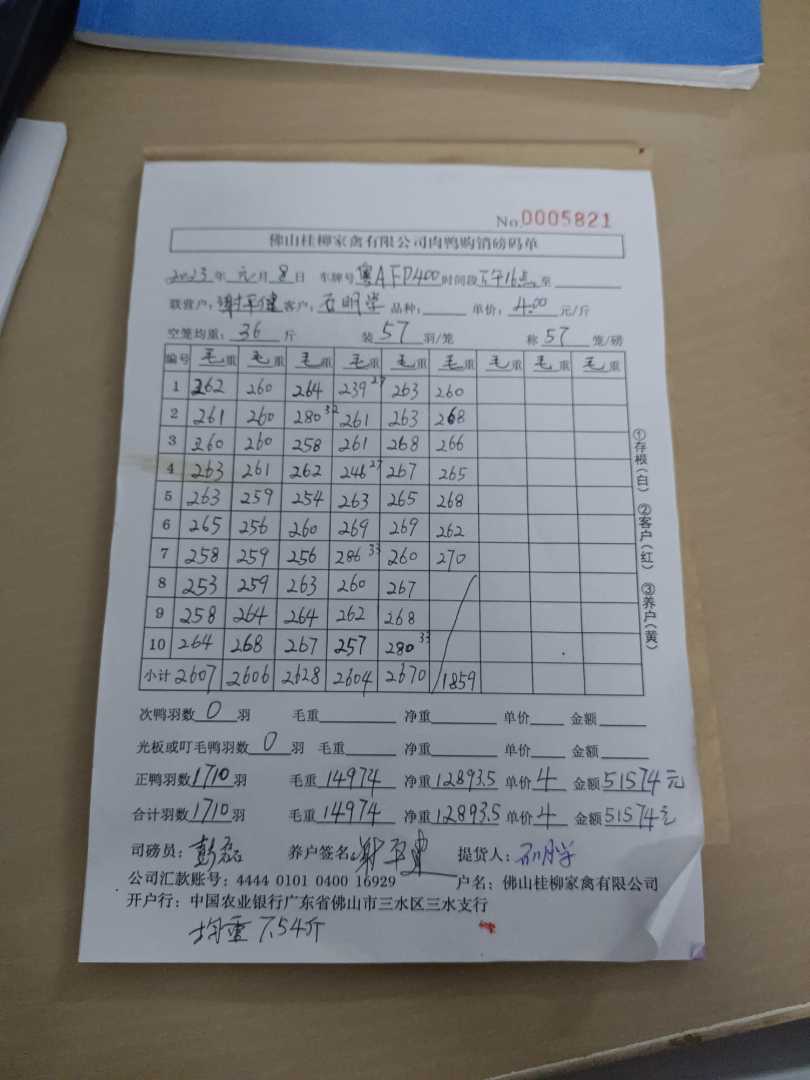 No.0005821
佛山桂柳家禽有限公司肉鸭购销磅码单
2023年元月8日 车牌号粤AFD400时间段下午16点至
联营户:谢军健客户:石明学品种: 单价:4.00元/斤
空笼均重:36斤 装57羽/笼 称57笼/磅
编号 毛重 毛重 毛重 毛重 毛重 毛重 毛重 毛重 毛重
1 262 260 264 239 27 263 260
2 261 260 280 32 261 263 268
3 260 260 258 261 268 266
4 263 261 262 246 27 267 265
5 263 259 254 263 265 268
6 265 256 260 269 269 262
7 258 259 256 286 33 260 270
8 253 259 263 260 267
9 258 264 264 262 268
10 264 268 267 257 280 33
小计 2607 2606 2628 2604 2670 1859
①存根(白) ②客户(红) ③养户(黄)
次鸭羽数0羽 毛重 净重 单价 金额
光板或叮毛鸭羽数0羽 毛重 净重 单价 金额
正鸭羽数1710羽 毛重14974 净重12893.5 单价4 金额51574元
合计羽数1710羽 毛重14974 净重12893.5 单价4 金额51574元
司磅员: 养户签名: 提货人:石明学
公司汇款账号:4444 0101 0400 16929 户名:佛山桂柳家禽有限公司
开户行:中国农业银行广东省佛山市三水区三水支行
均重 7.54斤